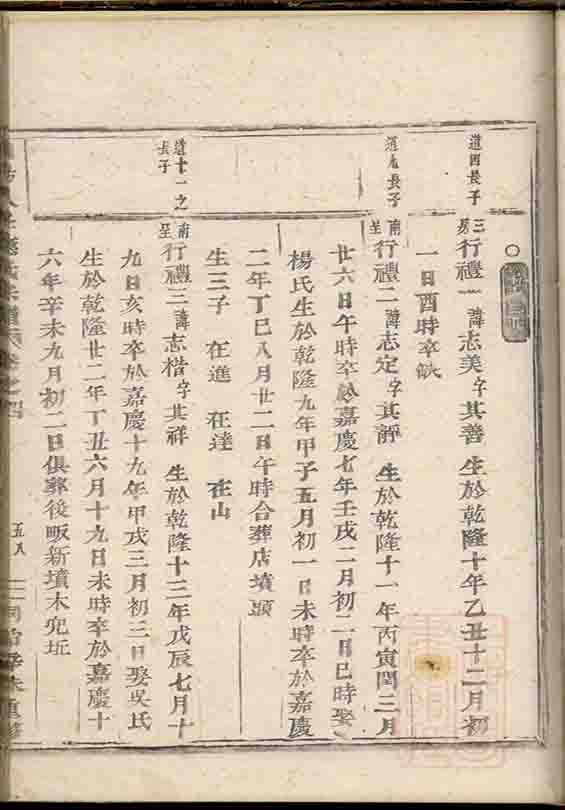 道四長子
三房行禮一諱志美字其善 生於乾隆十年乙丑十二月初
一日酉時卒缺
道九長子
南呈行禮二諱志定字其靜 生於乾隆十一年丙寅閏三月
廿六日午時卒於嘉慶七年壬戌二月初二日巳時娶
楊氏生於乾隆九年甲子五月初一日未時卒於嘉慶
二年丁巳八月廿二日午時合葬店墳
生三子 在進 在達 在山
道十一之長子
南呈行禮三諱志楷字其祥 生於乾隆十三年戊辰七月十
九日亥時卒於嘉慶十九年甲戌三月初三日娶吳氏
生於乾隆廿二年丁丑六月十九日未時卒於嘉慶十
六年辛未九月初二日俱葬後畈新墳木兜坵
五八